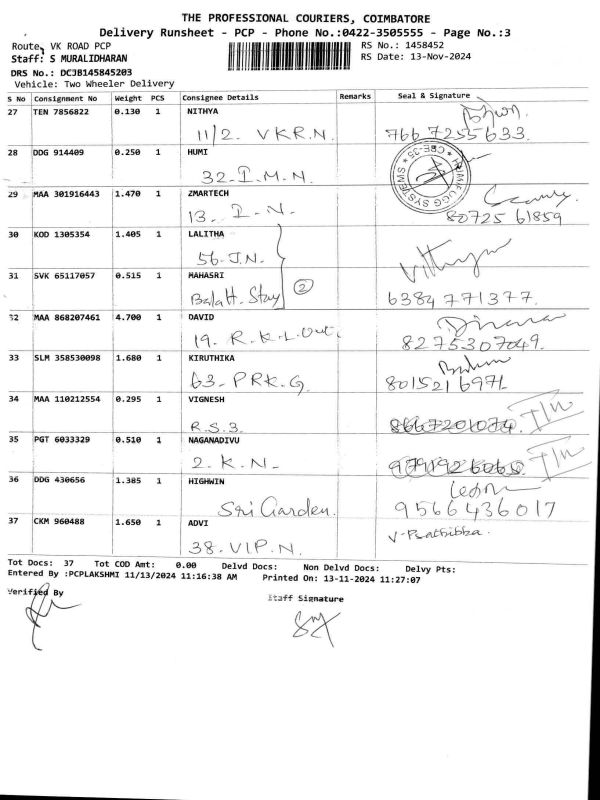 THE PROFESSIONAL COURIERS, COIMBATORE
Delivery Runsheet - PCP - Phone No.:0422-3505555 - Page No.:3
Route, VK ROAD PCP
RS No.: 1458452
Staff: S MURALIDHARAN
RS Date: 13-Nov-2024
DRS No.: DCJB145845203
Vehicle: Two Wheeler Delivery
S No Consignment No Weight PCS Consignee Details Remarks Seal & Signature
27 TEN 7856822 0.130 1 NITHYA
11/2. VKR.N. 766 7255633.
28 DDG 914409 0.250 1 HUMI
32. I.M.N. CBE-35
29 MAA 301916443 1.470 1 ZMARTECH
13. I.N. 80725 61859
30 KOD 1305354 1.405 1 LALITHA
56. J.N.
31 SVK 65117057 0.515 1 MAHASRI
Balatt. Stay 2 6384771377.
32 MAA 868207461 4.700 1 DAVID
19. R.K.L.Out. 8275307049.
33 SLM 358530098 1.680 1 KIRUTHIKA
63. PRK.G. 8015216971
34 MAA 110212554 0.295 1 VIGNESH
R.S.3.
35 PGT 6033329 0.510 1 NAGANADIVU
2. K.N.
36 DDG 430656 1.385 1 HIGHWIN
Sri Garden. 9566436017
37 CKM 960488 1.650 1 ADVI
38. VIP.N.
Tot Docs: 37 Tot COD Amt: 0.00 Delvd Docs: Non Delvd Docs: Delvy Pts:
Entered By :PCPLAKSHMI 11/13/2024 11:16:38 AM Printed On: 13-11-2024 11:27:07
Verified By Staff Signature